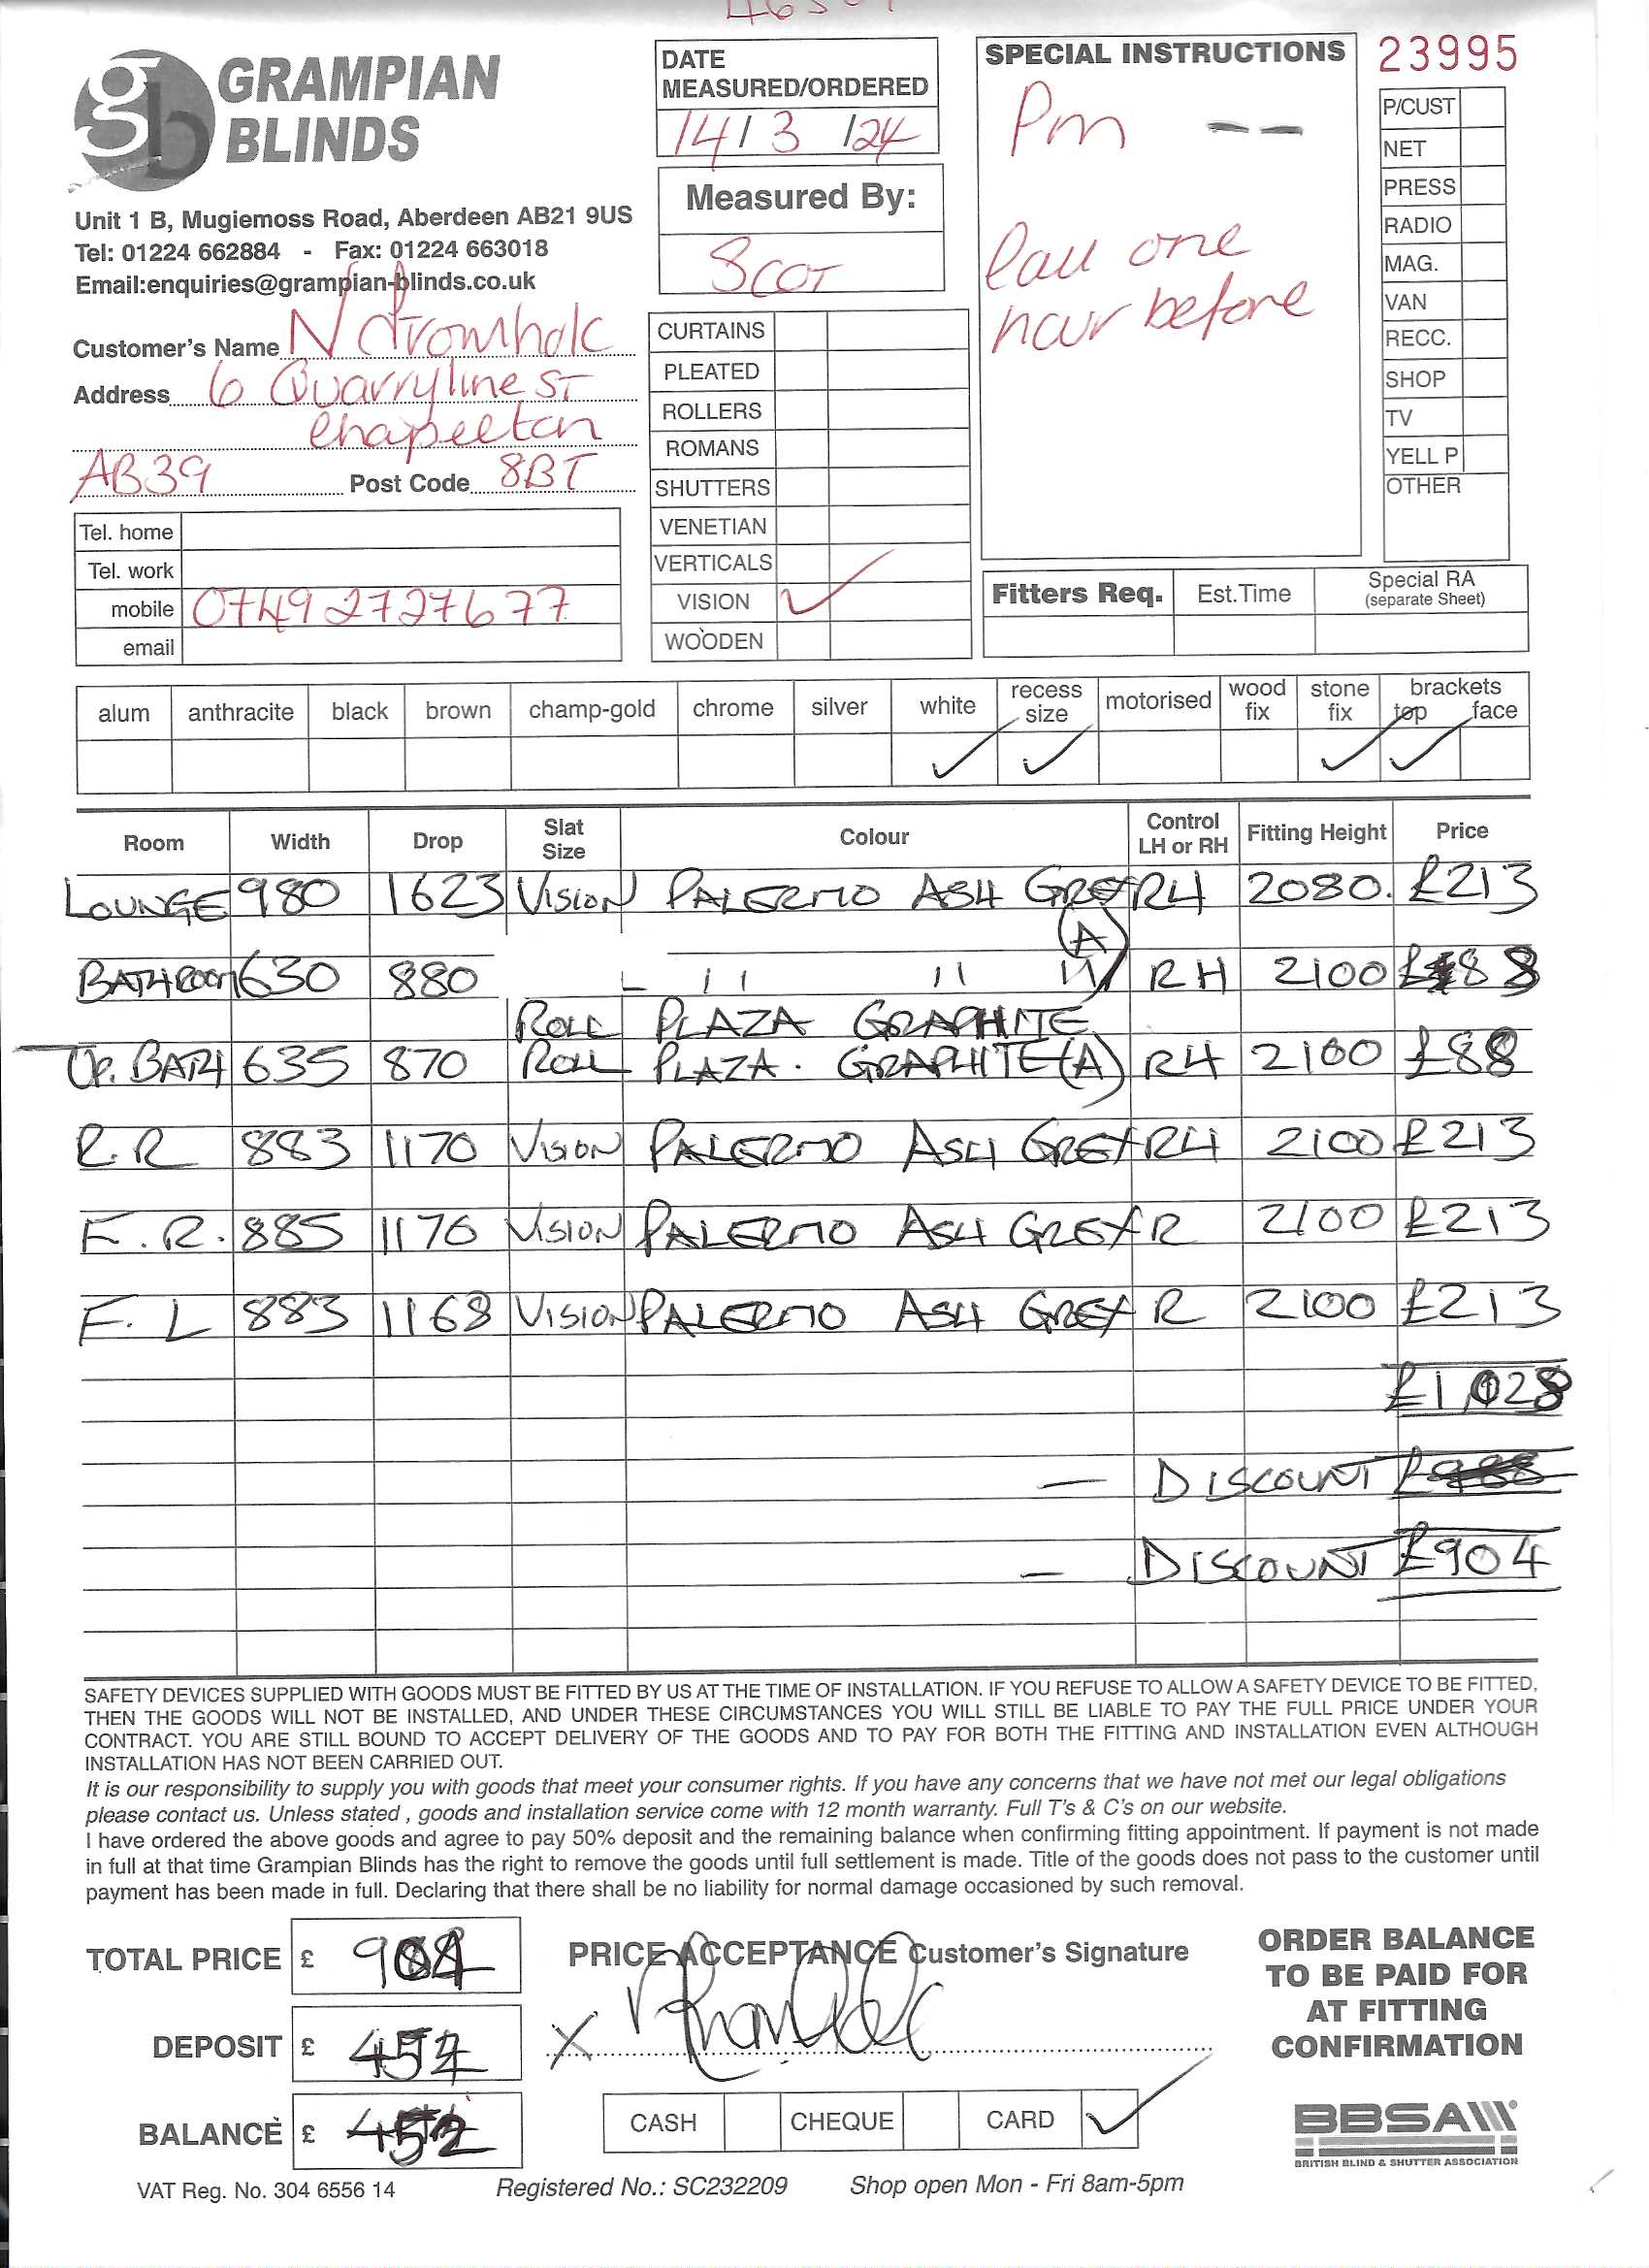 GRAMPIAN
BLINDS
Unit 1 B, Mugiemoss Road, Aberdeen AB21 9US
Tel: 01224 662884 - Fax: 01224 663018
Email:enquiries@grampian-blinds.co.uk
Customer's Name N
Address 6 Quarryline ST
Chapelton
AB39 Post Code 8BT
Tel. home
Tel. work
mobile 07492727677
email
DATE
MEASURED/ORDERED
14/3/24
Measured By:
Scot
CURTAINS
PLEATED
ROLLERS
ROMANS
SHUTTERS
VENETIAN
VERTICALS
VISION ✓
WOODEN
SPECIAL INSTRUCTIONS
Pm --
Call one
hour before
23995
P/CUST
NET
PRESS
RADIO
MAG.
VAN
RECC.
SHOP
TV
YELL P
OTHER
Fitters Req. Est.Time Special RA
(separate Sheet)
alum anthracite black brown champ-gold chrome silver white recess size motorised wood fix stone fix brackets top face
✓ ✓ ✓ ✓
Room Width Drop Slat Size Colour Control LH or RH Fitting Height Price
LOUNGE 980 1623 VISION PALERMO ASH GREY RH 2080. £213
(A)
BATHROOM 630 880 - " " " RH 2100 £88
ROLL PLAZA GRAPHITE
UP. BATH 635 870 ROLL PLAZA. GRAPHITE (A) RH 2100 £88
R.R 883 1170 VISION PALERMO ASH GREY RH 2100 £213
F.R. 885 1176 VISION PALERMO ASH GREY R 2100 £213
F.L 883 1168 VISION PALERMO ASH GREY R 2100 £213
£1,028
— DISCOUNT
— DISCOUNT £904
SAFETY DEVICES SUPPLIED WITH GOODS MUST BE FITTED BY US AT THE TIME OF INSTALLATION. IF YOU REFUSE TO ALLOW A SAFETY DEVICE TO BE FITTED,
THEN THE GOODS WILL NOT BE INSTALLED, AND UNDER THESE CIRCUMSTANCES YOU WILL STILL BE LIABLE TO PAY THE FULL PRICE UNDER YOUR
CONTRACT. YOU ARE STILL BOUND TO ACCEPT DELIVERY OF THE GOODS AND TO PAY FOR BOTH THE FITTING AND INSTALLATION EVEN ALTHOUGH
INSTALLATION HAS NOT BEEN CARRIED OUT.
It is our responsibility to supply you with goods that meet your consumer rights. If you have any concerns that we have not met our legal obligations
please contact us. Unless stated , goods and installation service come with 12 month warranty. Full T's & C's on our website.
I have ordered the above goods and agree to pay 50% deposit and the remaining balance when confirming fitting appointment. If payment is not made
in full at that time Grampian Blinds has the right to remove the goods until full settlement is made. Title of the goods does not pass to the customer until
payment has been made in full. Declaring that there shall be no liability for normal damage occasioned by such removal.
TOTAL PRICE £ 904
DEPOSIT £ 452
BALANCE £ 452
PRICE ACCEPTANCE Customer's Signature
X
CASH CHEQUE CARD ✓
ORDER BALANCE
TO BE PAID FOR
AT FITTING
CONFIRMATION
BBSA
BRITISH BLIND & SHUTTER ASSOCIATION
VAT Reg. No. 304 6556 14 Registered No.: SC232209 Shop open Mon - Fri 8am-5pm